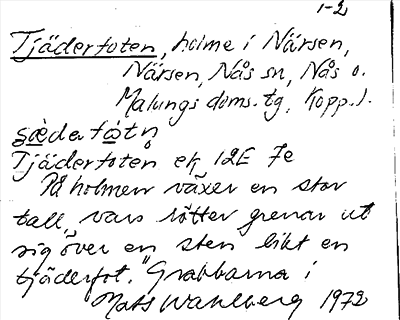 1-2
Tjäderfoten, holme i Närsen,
Närsen, Nås sn, Nås o.
Malungs doms. tg, Kopp. l.
Tjäderfoten ek 12E 7e
På holmen växer en stor
tall, vars rötter grenar ut
sig över en sten likt en
tjäderfot. "Grabbarna i
Mats Wahlberg 1972